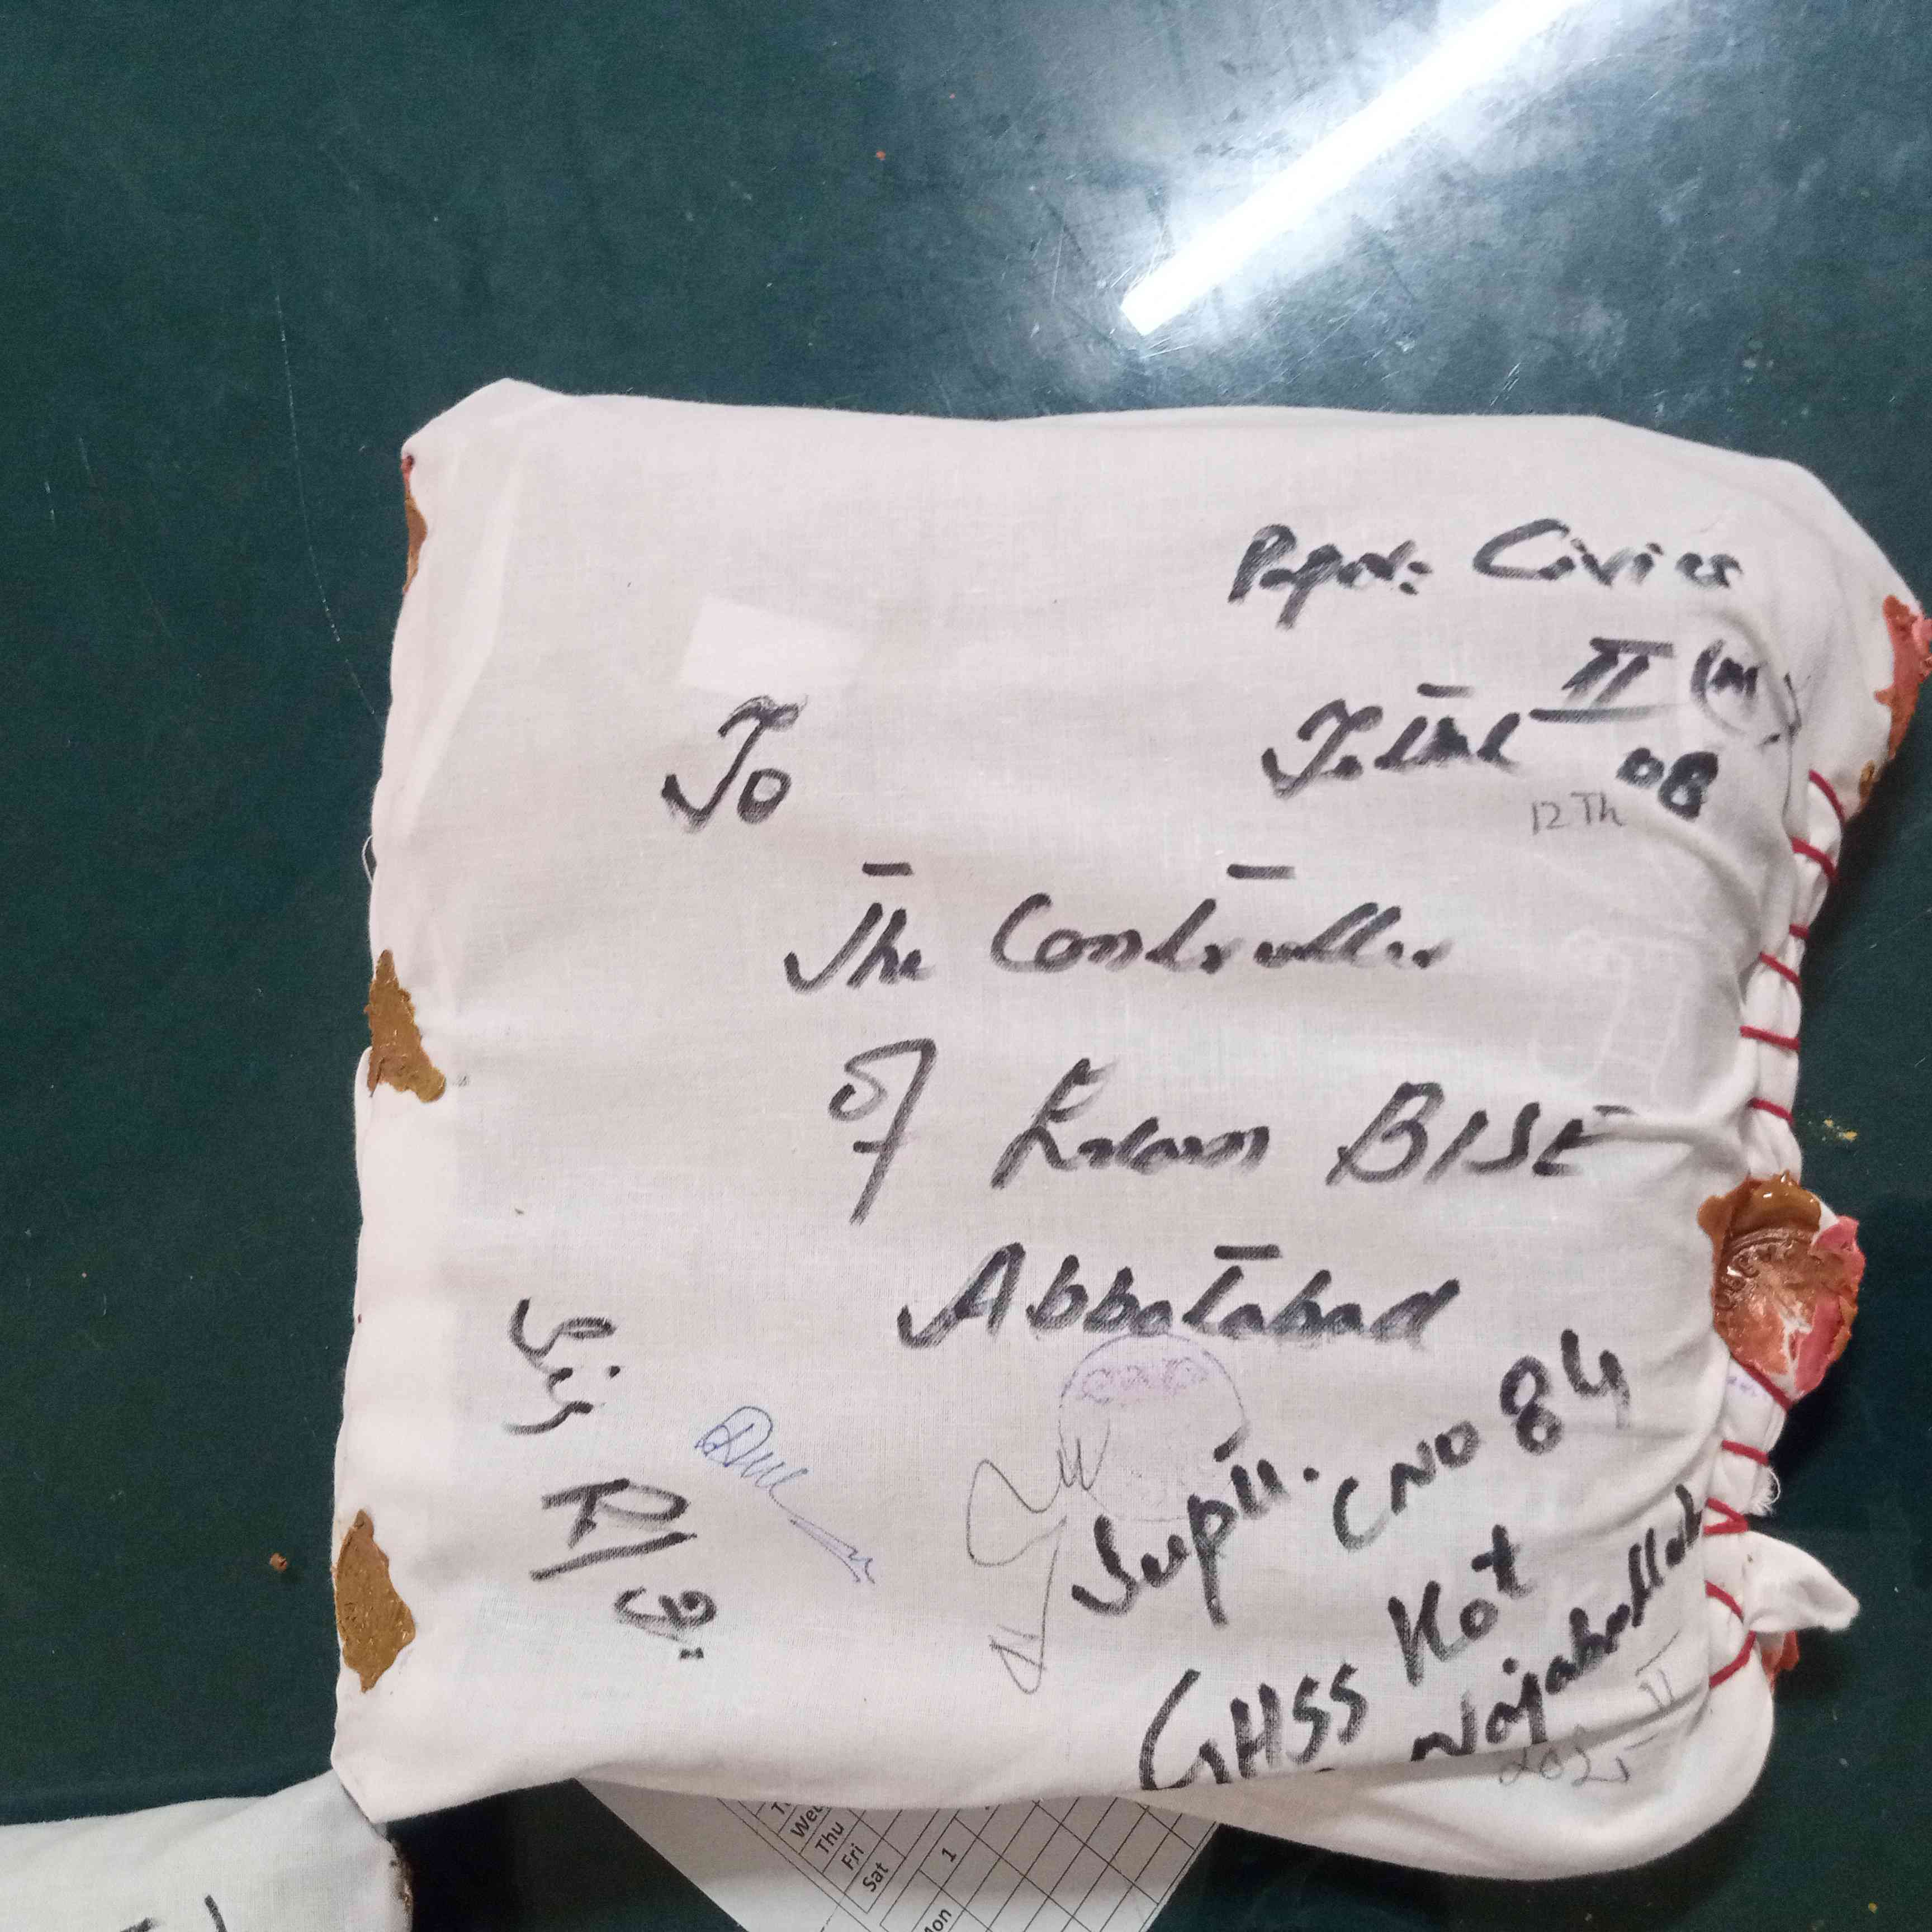 Paper: Civics
II (M)
Total 08
12 Th
To
The Controller
of Exam BISE
Abbotabad
Supti. CNO 84
GHSS Kot
Najabullah
II
2025
Wed
Thu
Fri
Sat
1
Mon